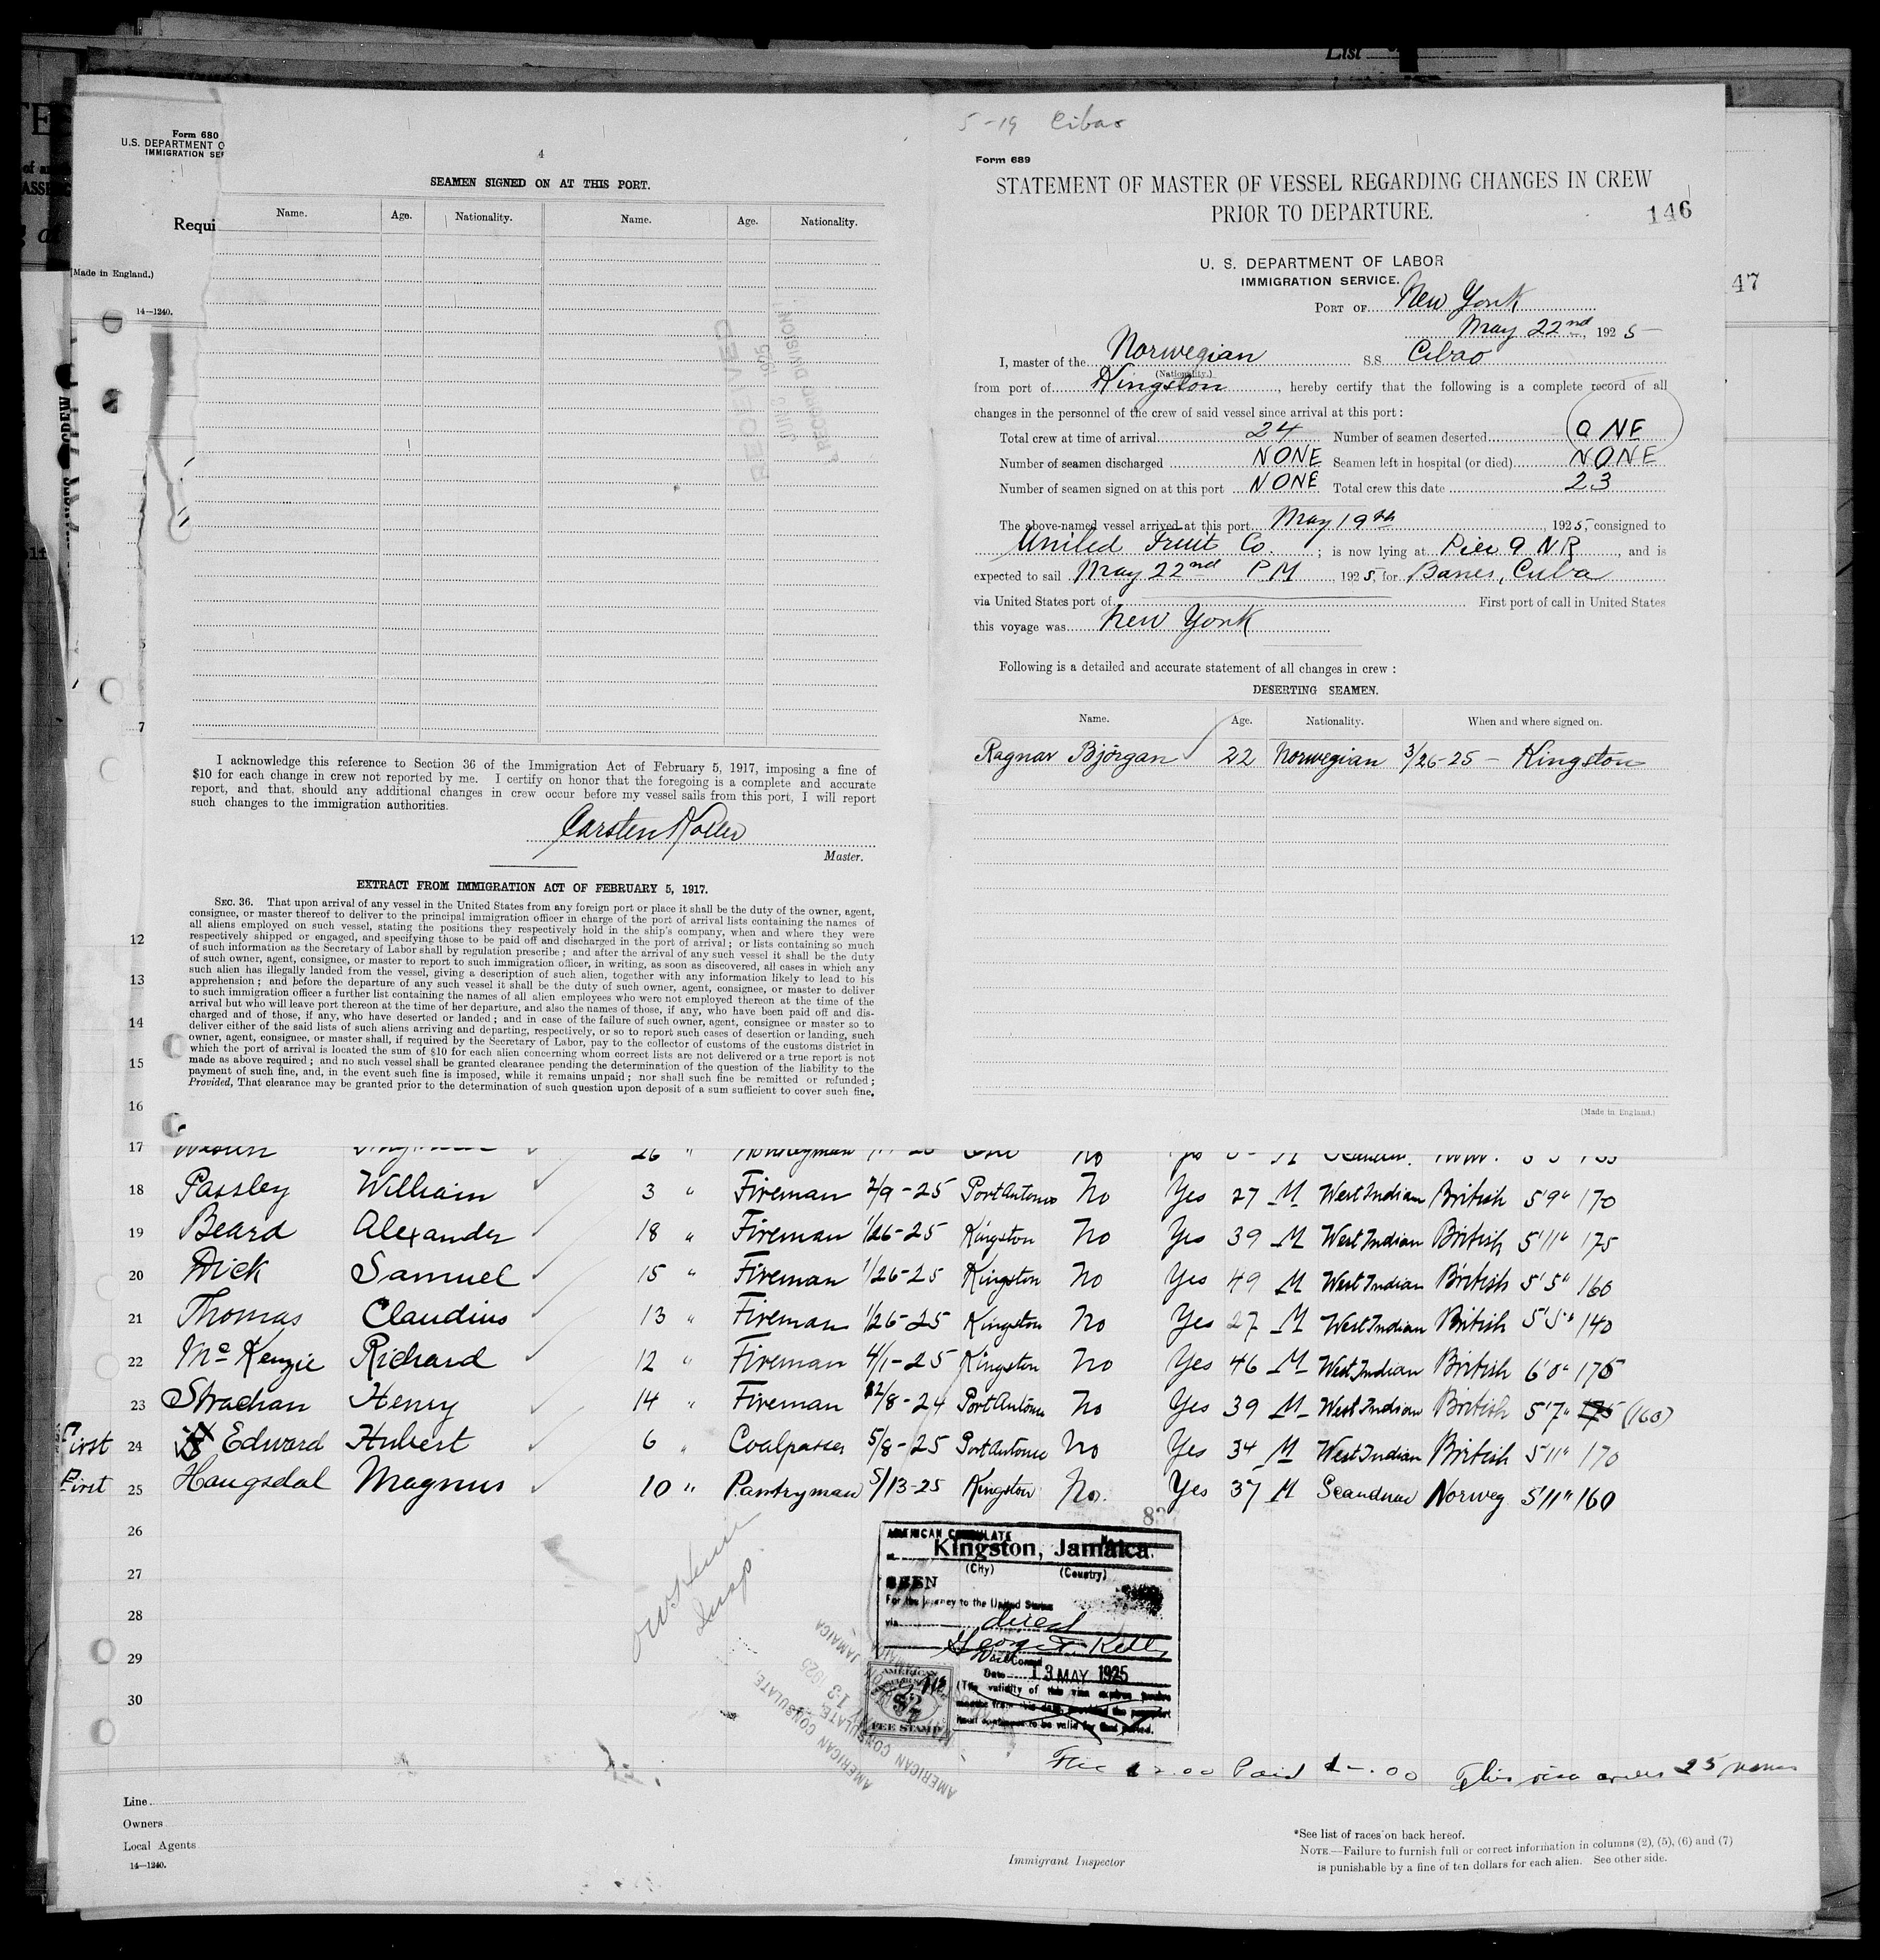 List
5-19 Cibao
Form 680
U.S. DEPARTMENT O
IMMIGRATION SER
Requi
(Made in England.)
14—1240.
4
SEAMEN SIGNED ON AT THIS PORT.
Name. Age. Nationality. Name. Age. Nationality.
RECEIVED
I acknowledge this reference to Section 36 of the Immigration Act of February 5, 1917, imposing a fine of
$10 for each change in crew not reported by me. I certify on honor that the foregoing is a complete and accurate
report, and that, should any additional changes in crew occur before my vessel sails from this port, I will report
such changes to the immigration authorities.
Carsten
Master.
EXTRACT FROM IMMIGRATION ACT OF FEBRUARY 5, 1917.
SEC. 36. That upon arrival of any vessel in the United States from any foreign port or place it shall be the duty of the owner, agent,
consignee, or master thereof to deliver to the principal immigration officer in charge of the port of arrival lists containing the names of
all aliens employed on such vessel, stating the positions they respectively hold in the ship's company, when and where they were
respectively shipped or engaged, and specifying those to be paid off and discharged in the port of arrival; or lists containing so much
of such information as the Secretary of Labor shall by regulation prescribe; and after the arrival of any such vessel it shall be the duty
of such owner, agent, consignee, or master to report to such immigration officer, in writing, as soon as discovered, all cases in which any
such alien has illegally landed from the vessel, giving a description of such alien, together with any information likely to lead to his
apprehension; and before the departure of any such vessel it shall be the duty of such owner, agent, consignee, or master to deliver
to such immigration officer a further list containing the names of all alien employees who were not employed thereon at the time of the
arrival but who will leave port thereon at the time of her departure, and also the names of those, if any, who have been paid off and dis-
charged and of those, if any, who have deserted or landed; and in case of the failure of such owner, agent, consignee or master so to
deliver either of the said lists of such aliens arriving and departing, respectively, or so to report such cases of desertion or landing, such
owner, agent, consignee, or master shall, if required by the Secretary of Labor, pay to the collector of customs of the customs district in
which the port of arrival is located the sum of $10 for each alien concerning whom correct lists are not delivered or a true report is not
made as above required; and no such vessel shall be granted clearance pending the determination of the question of the liability to the
payment of such fine, and, in the event such fine is imposed, while it remains unpaid; nor shall such fine be remitted or refunded;
Provided, That clearance may be granted prior to the determination of such question upon deposit of a sum sufficient to cover such fine.
Form 689
STATEMENT OF MASTER OF VESSEL REGARDING CHANGES IN CREW
PRIOR TO DEPARTURE.
146
47
U. S. DEPARTMENT OF LABOR
IMMIGRATION SERVICE.
PORT OF New York
May 22nd, 1925
I, master of the Norwegian S.S. Cibao
(Nationality.)
from port of Kingston, hereby certify that the following is a complete record of all
changes in the personnel of the crew of said vessel since arrival at this port:
Total crew at time of arrival 24 Number of seamen deserted ONE
Number of seamen discharged NONE Seamen left in hospital (or died) NONE
Number of seamen signed on at this port NONE Total crew this date 23
The above-named vessel arrived at this port May 19th, 1925, consigned to
United Fruit Co.; is now lying at Pier 9 NR, and is
expected to sail May 22nd PM 1925, for Banes, Cuba
via United States port of First port of call in United States
this voyage was New York
Following is a detailed and accurate statement of all changes in crew:
DESERTING SEAMEN.
Name. Age. Nationality. When and where signed on.
Ragnar Björgan 22 Norwegian 3/26-25 — Kingston
(Made in England.)
7
12
13
14
15
16
17
18 Passley William 3 " Fireman 2/9-25 Port Antonio No Yes 27 M West Indian British 5'9" 170
19 Beard Alexander 18 " Fireman 1/26-25 Kingston No Yes 39 M West Indian British 5'11" 175
20 Dick Samuel 15 " Fireman 1/26-25 Kingston No Yes 49 M West Indian British 5'5" 160
21 Thomas Claudius 13 " Fireman 1/26-25 Kingston No Yes 27 M West Indian British 5'5" 140
22 McKenzie Richard 12 " Fireman 4/1-25 Kingston No Yes 46 M West Indian British 6'0" 175
23 Strachan Henry 14 " Fireman 12/8-24 Port Antonio No Yes 39 M West Indian British 5'7" 175 (160)
First 24 Edward Hubert 6 " Coalpasser 5/8-25 Port Antonio No Yes 34 M West Indian British 5'11" 170
First 25 Haugsdal Magnus 10 " Pantryman 5/13-25 Kingston No. Yes 37 M Scandnav Norweg 5'11" 160
26
27
28
29
30
AMERICAN CONSULATE
Kingston, Jamaica.
(City) (Country)
SEEN
For the journey to the United States
via direct
Vice Consul
Date 13 MAY 1925
(The validity of this visa expires twelve
months from this date, provided the passport
itself continues to be valid for that period.
AMERICAN
$2
FEE STAMP
AMERICAN CONSULATE,
13 1925
JAMAICA
Fee $2.00 Paid This visa covers 25 names
Line
Owners
Local Agents
14—1240.
Immigrant Inspector
*See list of races on back hereof.
NOTE.—Failure to furnish full or correct information in columns (2), (5), (6) and (7)
is punishable by a fine of ten dollars for each alien. See other side.